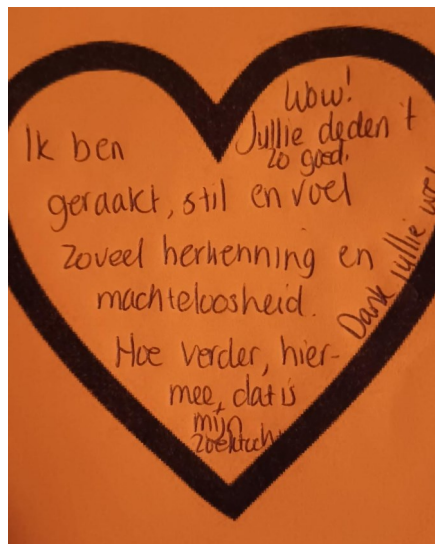 Wow!
Jullie deden 't
zo goed.
Ik ben
geraakt, stil en voel
zoveel herkenning en
machteloosheid.
Hoe verder, hier-
mee, dat is
mijn
zoektocht
Dank jullie wel